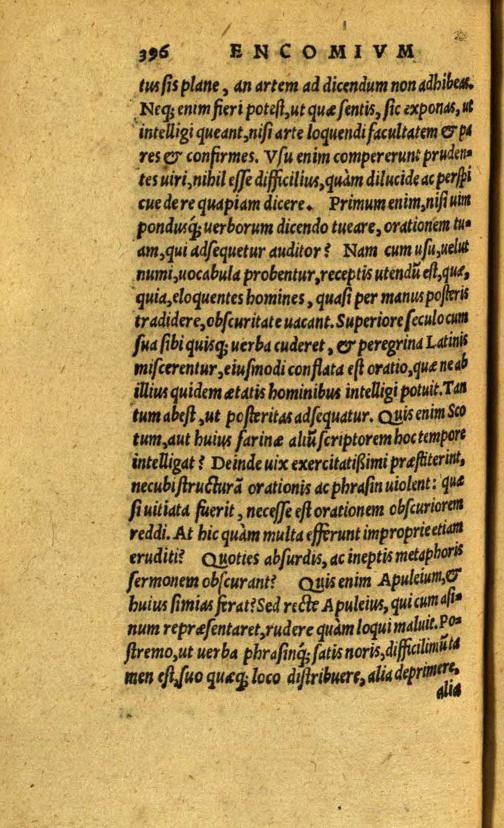 396 ENCOMIVM
tus sis plane, an artem ad dicendum non adhibeas.
Neq; enim fieri potest, ut quæ sentis, sic exponas, ut
intelligi queant, nisi arte loquendi facultatem & pa
res & confirmes. Vsu enim compererunt pruden-
tes uiri, nihil esse difficilius, quàm dilucide ac perspi
cue de re quapiam dicere. Primum enim, nisi uim
pondusq; uerborum dicendo tueare, orationem tu-
am, qui adsequetur auditor? Nam cum usu, uelut
numi, uocabula probentur, receptis utendũ est, quæ,
quia, eloquentes homines, quasi per manus posteris
tradidere, obscuritate uacant. Superiore seculo cum
sua sibi quisq; uerba cuderet, & peregrina Latinis
miscerentur, eiusmodi conflata est oratio, quæ ne ab
illius quidem ætatis hominibus intelligi potuit. Tan
tum abest, ut posteritas adsequatur. Quis enim Sco
tum, aut huius farinæ aliũ scriptorem hoc tempore
intelligat? Deinde uix exercitatißimi præstiterint,
necubi structurã orationis ac phrasin uiolent: quæ
si uitiata fuerit, necesse est orationem obscuriorem
reddi. At hic quàm multa efferunt improprie etiam
eruditi? Quoties absurdis, ac ineptis metaphoris
sermonem obscurant? Quis enim Apuleium, &
huius simias ferat? Sed recte Apuleius, qui cum asi-
num repræsentaret, rudere quàm loqui maluit. Po-
stremo, ut uerba phrasinq; satis noris, difficilimũ ta
men est, suo quæq; loco distribuere, alia deprimere,
alia